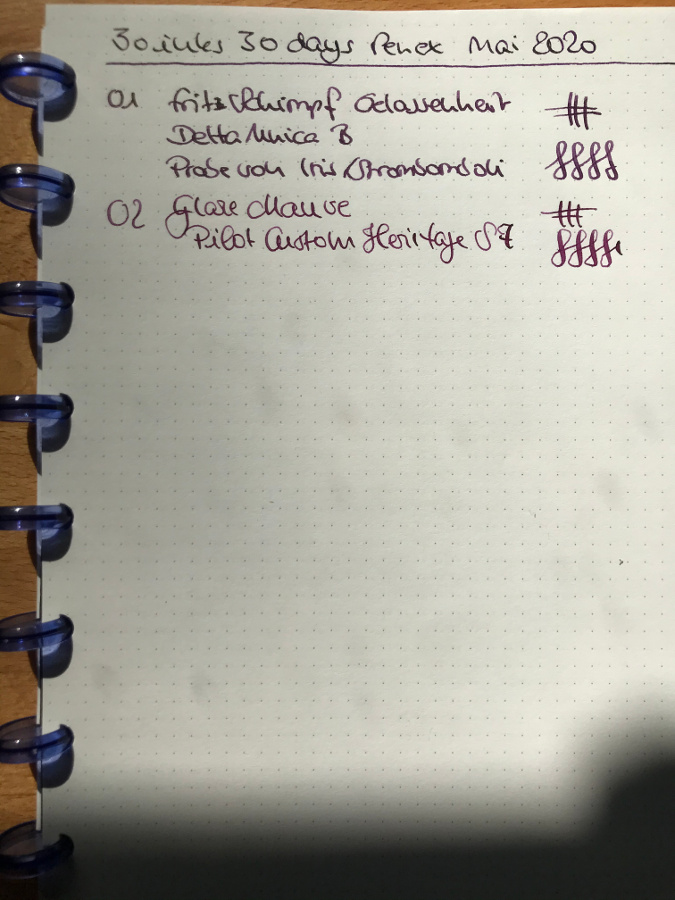 30 inks 30 days Penex Mai 2020
01 Fritz Schimpf Gelassenheit
Delta Unica B
Probe von Iris Strombomboli
02 Glase Mauve
Pilot Custom Heritage SF